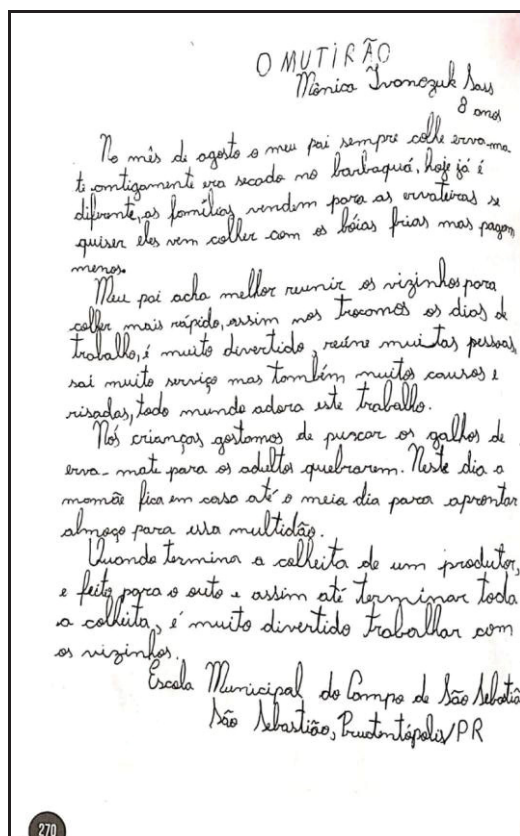 O MUTIRÃO
Mônica Ivanczuk Saus
8 anos
No mês de agosto o meu pai sempre colhe erva-ma
te antigamente era secado no barbaquá, hoje já é
diferente, as famílias vendem para as ervateiras se
quiser eles vem colher com os bóias frias mas pagam
menos.
Meu pai acha melhor reunir os vizinhos para
colher mais rápido, assim nos trocamos os dias de
trabalho, é muito divertido, reúne muitas pessoas,
sai muito serviço mas também muitos causos e
risadas, todo mundo adora este trabalho.
Nós crianças gostamos de puxcar os galhos de
erva-mate para os adultos quebrarem. Neste dia a
mamãe fica em casa até o meia dia para aprontar
almoço para essa multidão.
Quando termina a colheita de um produtor,
e feito para o outo e assim até terminar toda
a colheita, é muito divertido trabalhar com
os vizinhos.
Escola Municipal do Campo de São Sebastiã
São Sebastião, Prudentópolis/PR
270